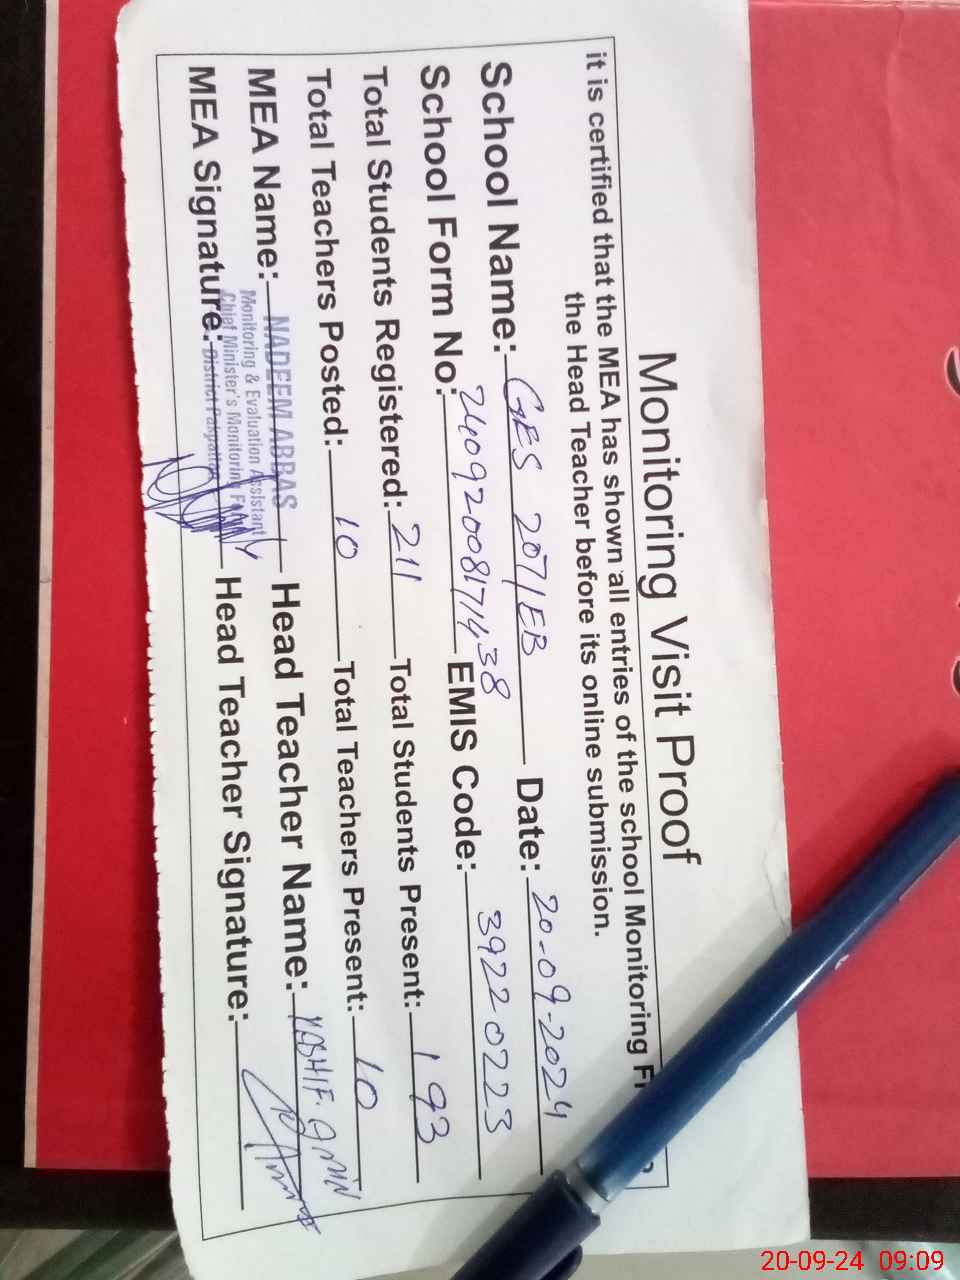 Monitoring Visit Proof
it is certified that the MEA has shown all entries of the school Monitoring
the Head Teacher before its online submission.
School Name: GES 207/EB Date: 20-09-2024
School Form No. 24092008171438 EMIS Code: 39220223
Total Students Registered: 211 Total Students Present: 193
Total Teachers Posted: 10 Total Teachers Present: 10
MEA Name: NADEEM ABBAS Head Teacher Name: KASHIF. AMIN
Monitoring & Evaluation Assistant
Chief Minister's Monitoring Force
MEA Signature: District Pakpattan Head Teacher Signature:
20-09-24 09:09